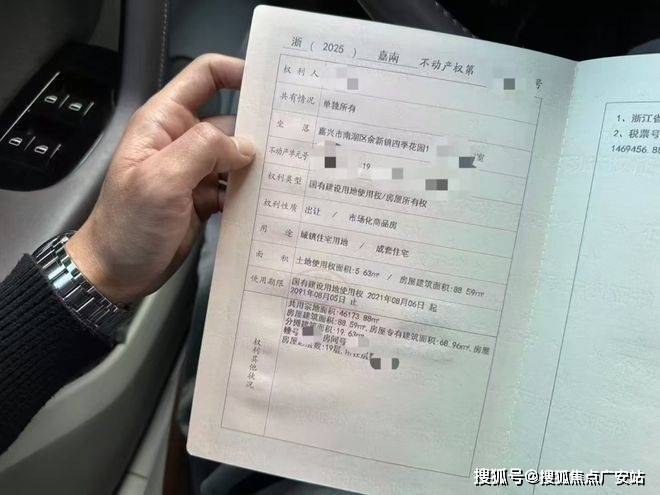 浙 ( 2025 ) 嘉南 不动产权第 号
权利人
共有情况 单独所有
坐落 嘉兴市南湖区余新镇四季花园1 室
不动产单元号 19
权利类型 国有建设用地使用权/房屋所有权
权利性质 出让 / 市场化商品房
用途 城镇住宅用地 / 成套住宅
面积 土地使用权面积:5.63㎡ / 房屋建筑面积:88.59㎡
使用期限 国有建设用地使用权 2021年08月06日 起
2091年08月05日 止
权利其他状况
共用宗地面积:46173.88㎡
房屋建筑面积:88.59㎡,房屋专有建筑面积:68.96㎡,房屋
分摊建筑面积:19.63㎡
幢号 房间号
房屋总层数:19层,
1、浙江省
2、税票号
1469456.88
搜狐号@搜狐焦点广安站